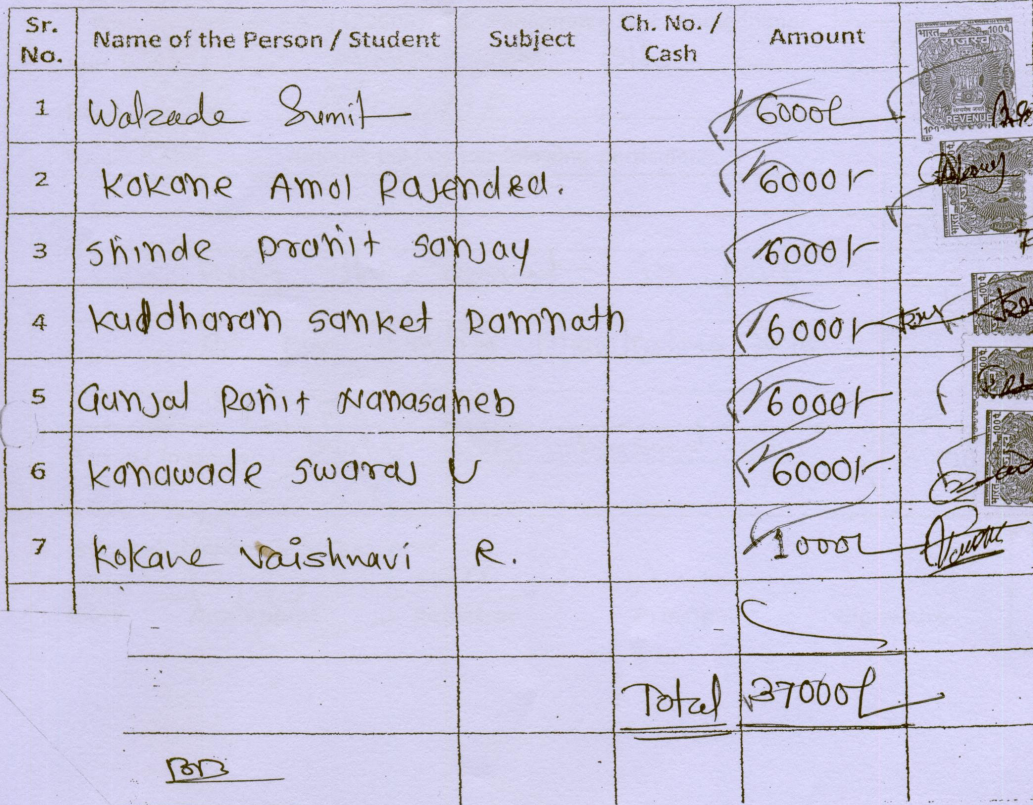 Sr. No. Name of the Person / Student Subject Ch. No. / Cash Amount
1 Walzade Sumit 6000/-
2 Kokane Amol Rajendra. 6000/-
3 Shinde Pranit Sanjay 6000/-
4 Kuddharan Sanket Ramnath 6000/-
5 Gunjal Rohit Nanasaheb 6000/-
6 Kanawade Swaraj U 6000/-
7 Kokane Vaishnavi R. 1000/-
Total 37000/-
भारत
REVENUE